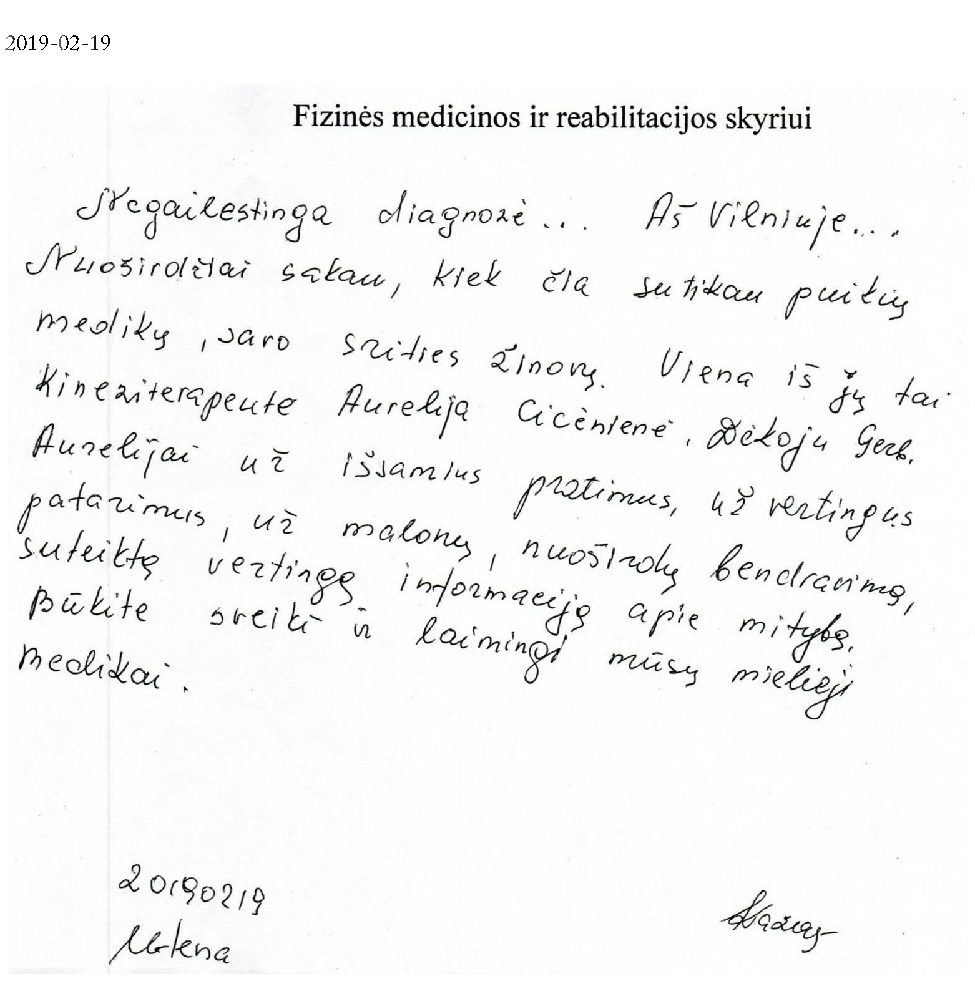 2019-02-19
Fizinės medicinos ir reabilitacijos skyriui
Negailestinga diagnozė... Aš Vilniuje...
Nuoširdžiai sakau, kiek čia sutikau puikių
medikų, savo srities žinovų. Viena iš jų tai
Kineziterapeutė Aurelija Cicėnienė. Dėkoju Gerb.
Aurelijai už išsamius pratimus, už vertingus
patarimus, už malonų, nuoširdų bendravimą,
suteiktą vertingą informaciją apie mitybą.
Būkite sveiki ir laimingi mūsų mielieji
medikai.
20190219
Utena